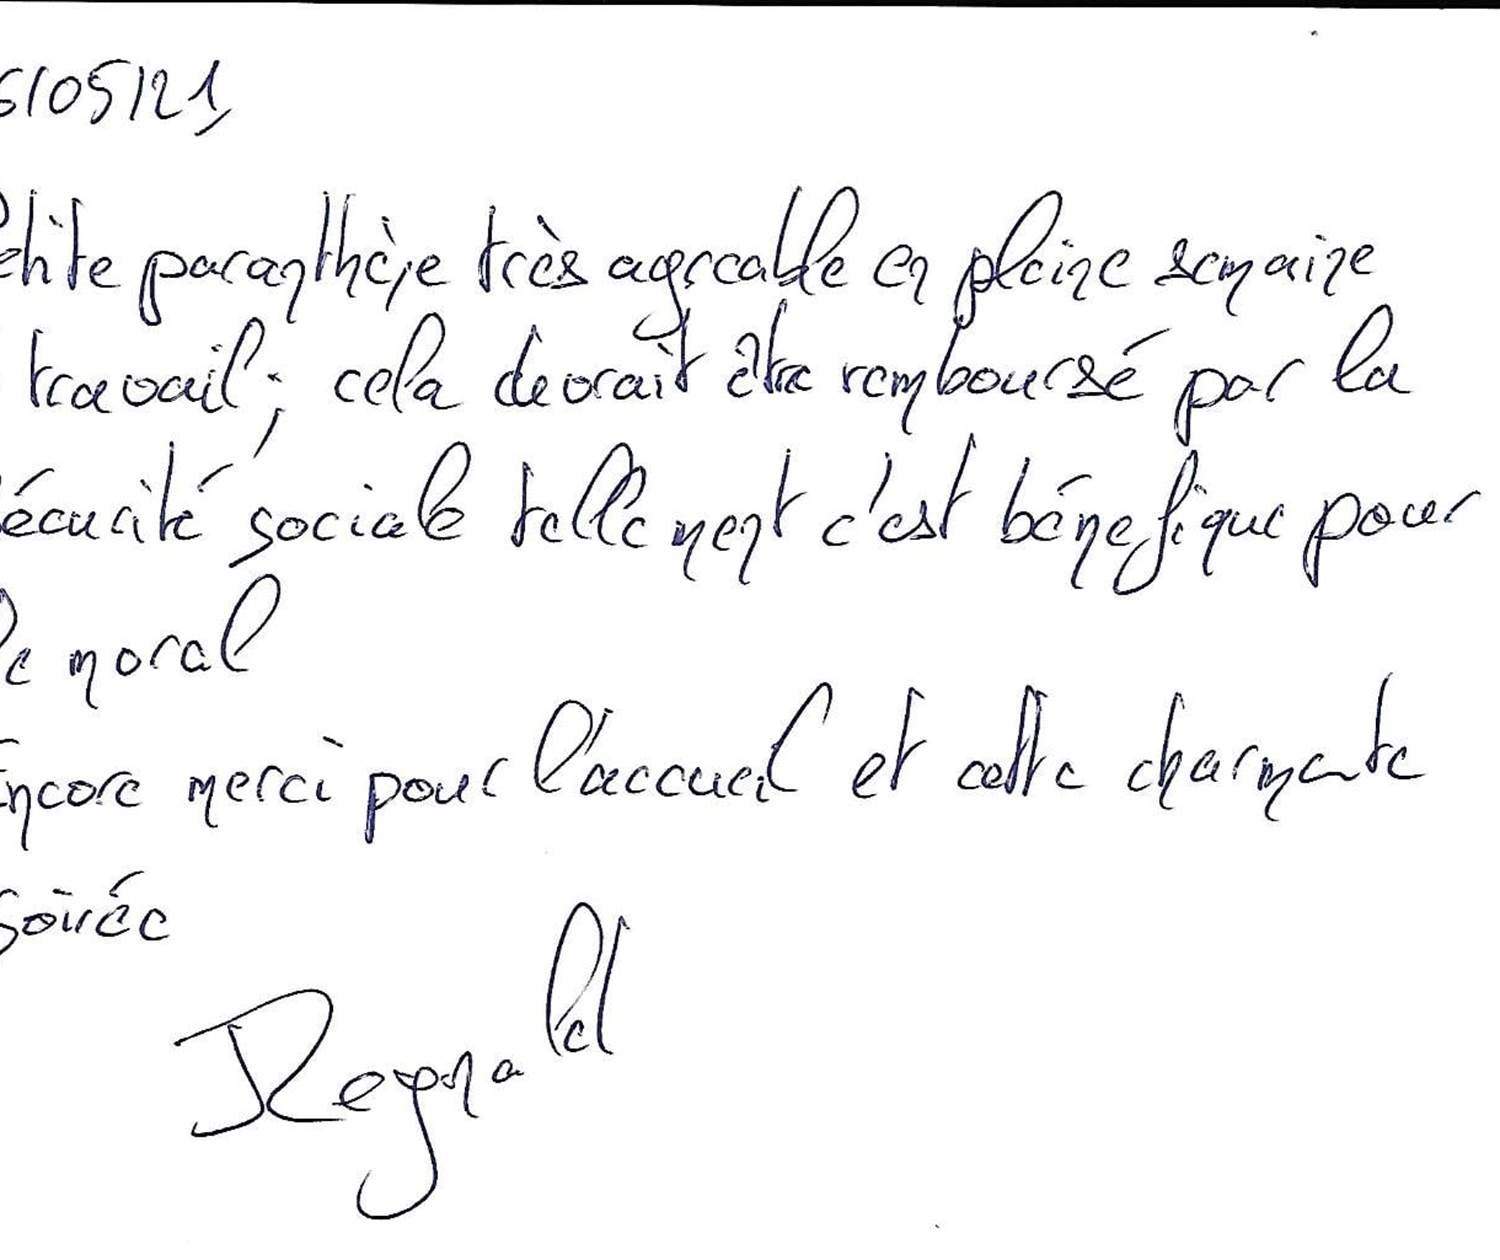 6/05/21,
etite paranthèse très agréable en pleine semaine
travail; cela devrait être remboursé par la
écurité sociale tellement c'est bénefique pour
le moral
Encore merci pour l'accueil et cette charmante
soirée
Regnald